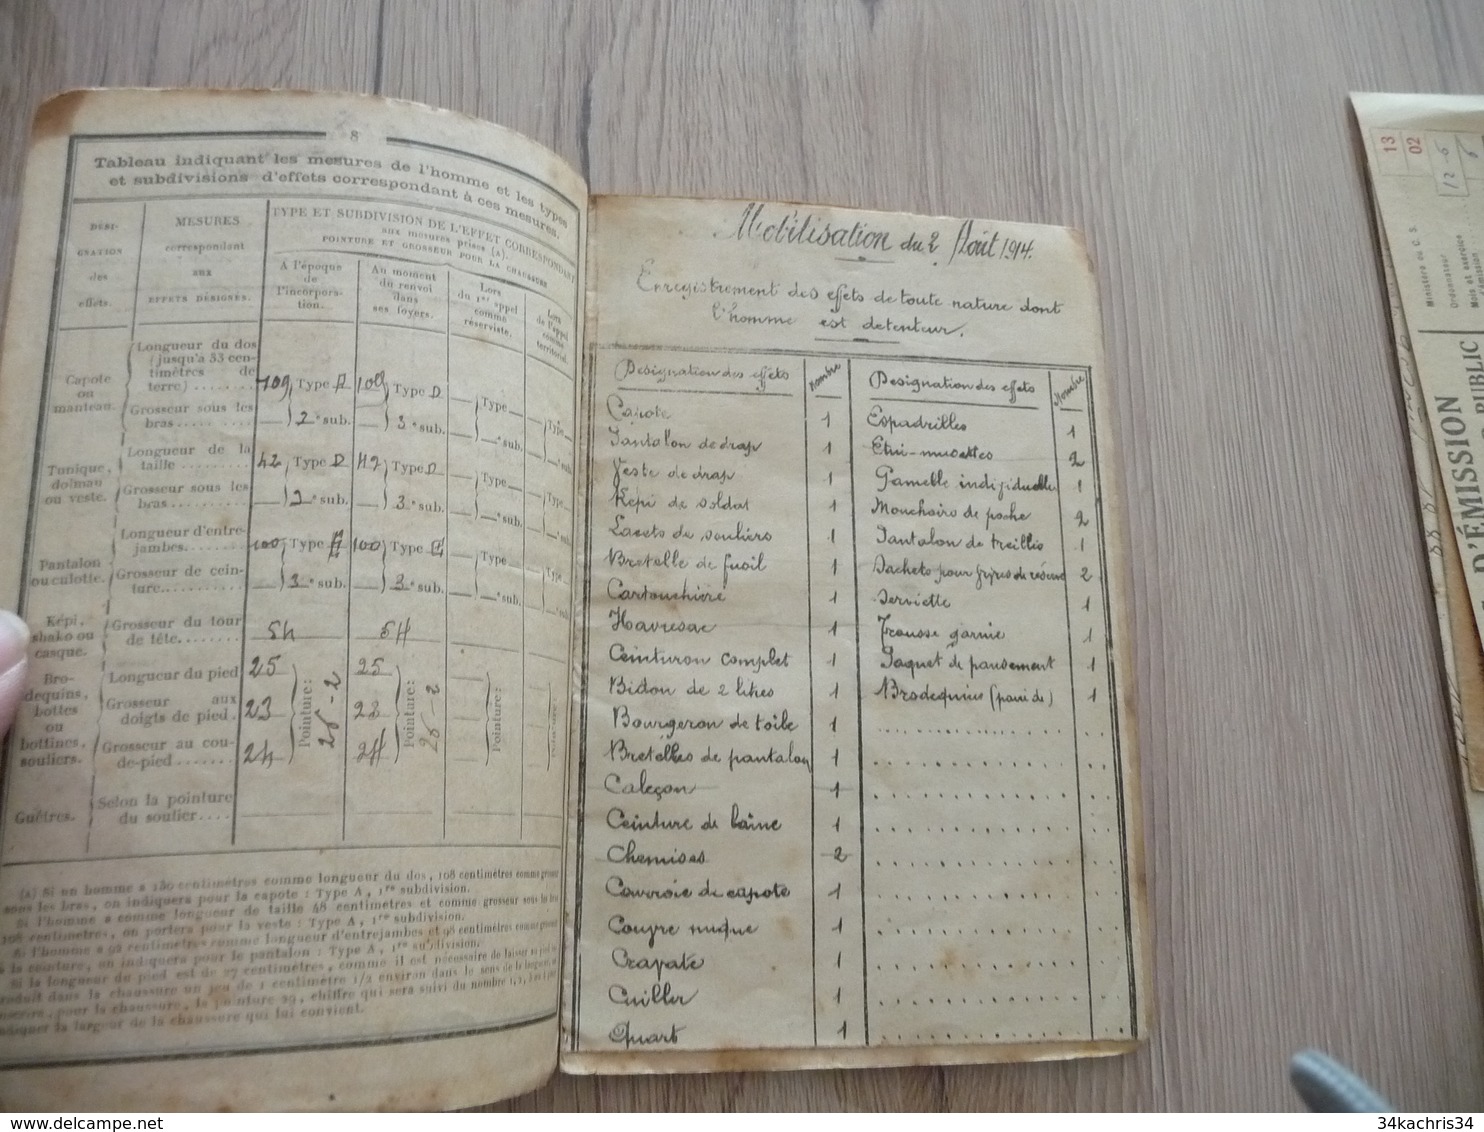 8
Tableau indiquant les mesures de l'homme et les types
et subdivisions d'effets correspondant à ces mesures.
DÉSI-
GNATION
des
effets.
MESURES
correspondant
aux
EFFETS DÉSIGNÉS.
TYPE ET SUBDIVISION DE L'EFFET CORRESPONDANT
aux mesures prises (A).
POINTURE ET GROSSEUR POUR LA CHAUSSURE
A l'époque
de
l'incorpora-
tion.
Au moment
du renvoi
dans
ses foyers.
Lors
du 1er appel
comme
réserviste.
Lors
de l'appel
comme
territorial.
Capote
ou
manteau.
Longueur du dos
(jusqu'à 33 cen-
timètres de
terre)
109 Type D 109 Type D Type Type
Grosseur sous les
bras
2e sub. 3e sub. e sub.
Tunique,
dolman
ou veste.
Longueur de la
taille
42 Type D 42 Type D Type Type
Grosseur sous les
bras
2e sub. 3e sub. e sub.
Pantalon
ou culotte.
Longueur d'entre-
jambes
100 Type 100 Type Type Type
Grosseur de cein-
ture
3e sub. 3e sub. e sub.
Képi,
shako ou
casque.
Grosseur du tour
de tête
54 54
Bro-
dequins,
bottes
ou
bottines,
souliers.
Longueur du pied 25 25
Grosseur aux
doigts de pied. 23 23
Grosseur au cou-
de-pied 24 24
Pointure: 26-2 Pointure: 26-2 Pointure: Pointure:
Guêtres.
Selon la pointure
du soulier
(A) Si un homme a 130 centimètres comme longueur du dos, 108 centimètres comme grosseur
sous les bras, on indiquera pour la capote : Type A, 1re subdivision.
Si l'homme a comme longueur de taille 48 centimètres et comme grosseur sous les bras
108 centimètres, on portera pour la veste : Type A, 1re subdivision.
Si l'homme a 92 centimètres comme longueur d'entrejambes et 98 centimètres comme grosseur
à la ceinture, on indiquera pour le pantalon : Type A, 1re subdivision.
Si la longueur du pied est de 27 centimètres, comme il est nécessaire de laisser au pied
dans la chaussure un jeu de 1 centimètre 1/2 environ dans le sens de la longueur
pour la chaussure, la pointure 29, chiffre qui sera suivi du nombre 1, 2,
indiquer la largeur de la chaussure qui lui convient.
Mobilisation du 2 Août 1914.
Enregistrement des effets de toute nature dont
l'homme est détenteur.
Désignation des effets Nombre Désignation des effets Nombre
Capote 1 Espadrilles 1
Pantalon de drap 1 Etui-musettes 2
Veste de drap 1 Gamelle individuelle 1
Képi de soldat 1 Mouchoirs de poche 2
Lacets de souliers 1 Pantalon de treillis 1
Bretelle de fusil 1 Sachets pour vivres de réserve 2
Cartouchière 1 Serviette 1
Havresac 1 Trousse garnie 1
Ceinturon complet 1 Paquet de pansement 1
Bidon de 2 litres 1 Brodequins (paire de) 1
Bourgeron de toile 1
Bretelles de pantalon 1
Caleçon 1
Ceinture de laine 1
Chemises 2
Courroie de capote 1
Couvre nuque 1
Cravate 1
Cuiller 1
Quart 1
13
02
12-6
6
Ministère du C. S.
Ordonnateur
Mois et exercice
d'émission
D'ÉMISSION
PUBLIC
34kachris34
34kachris34